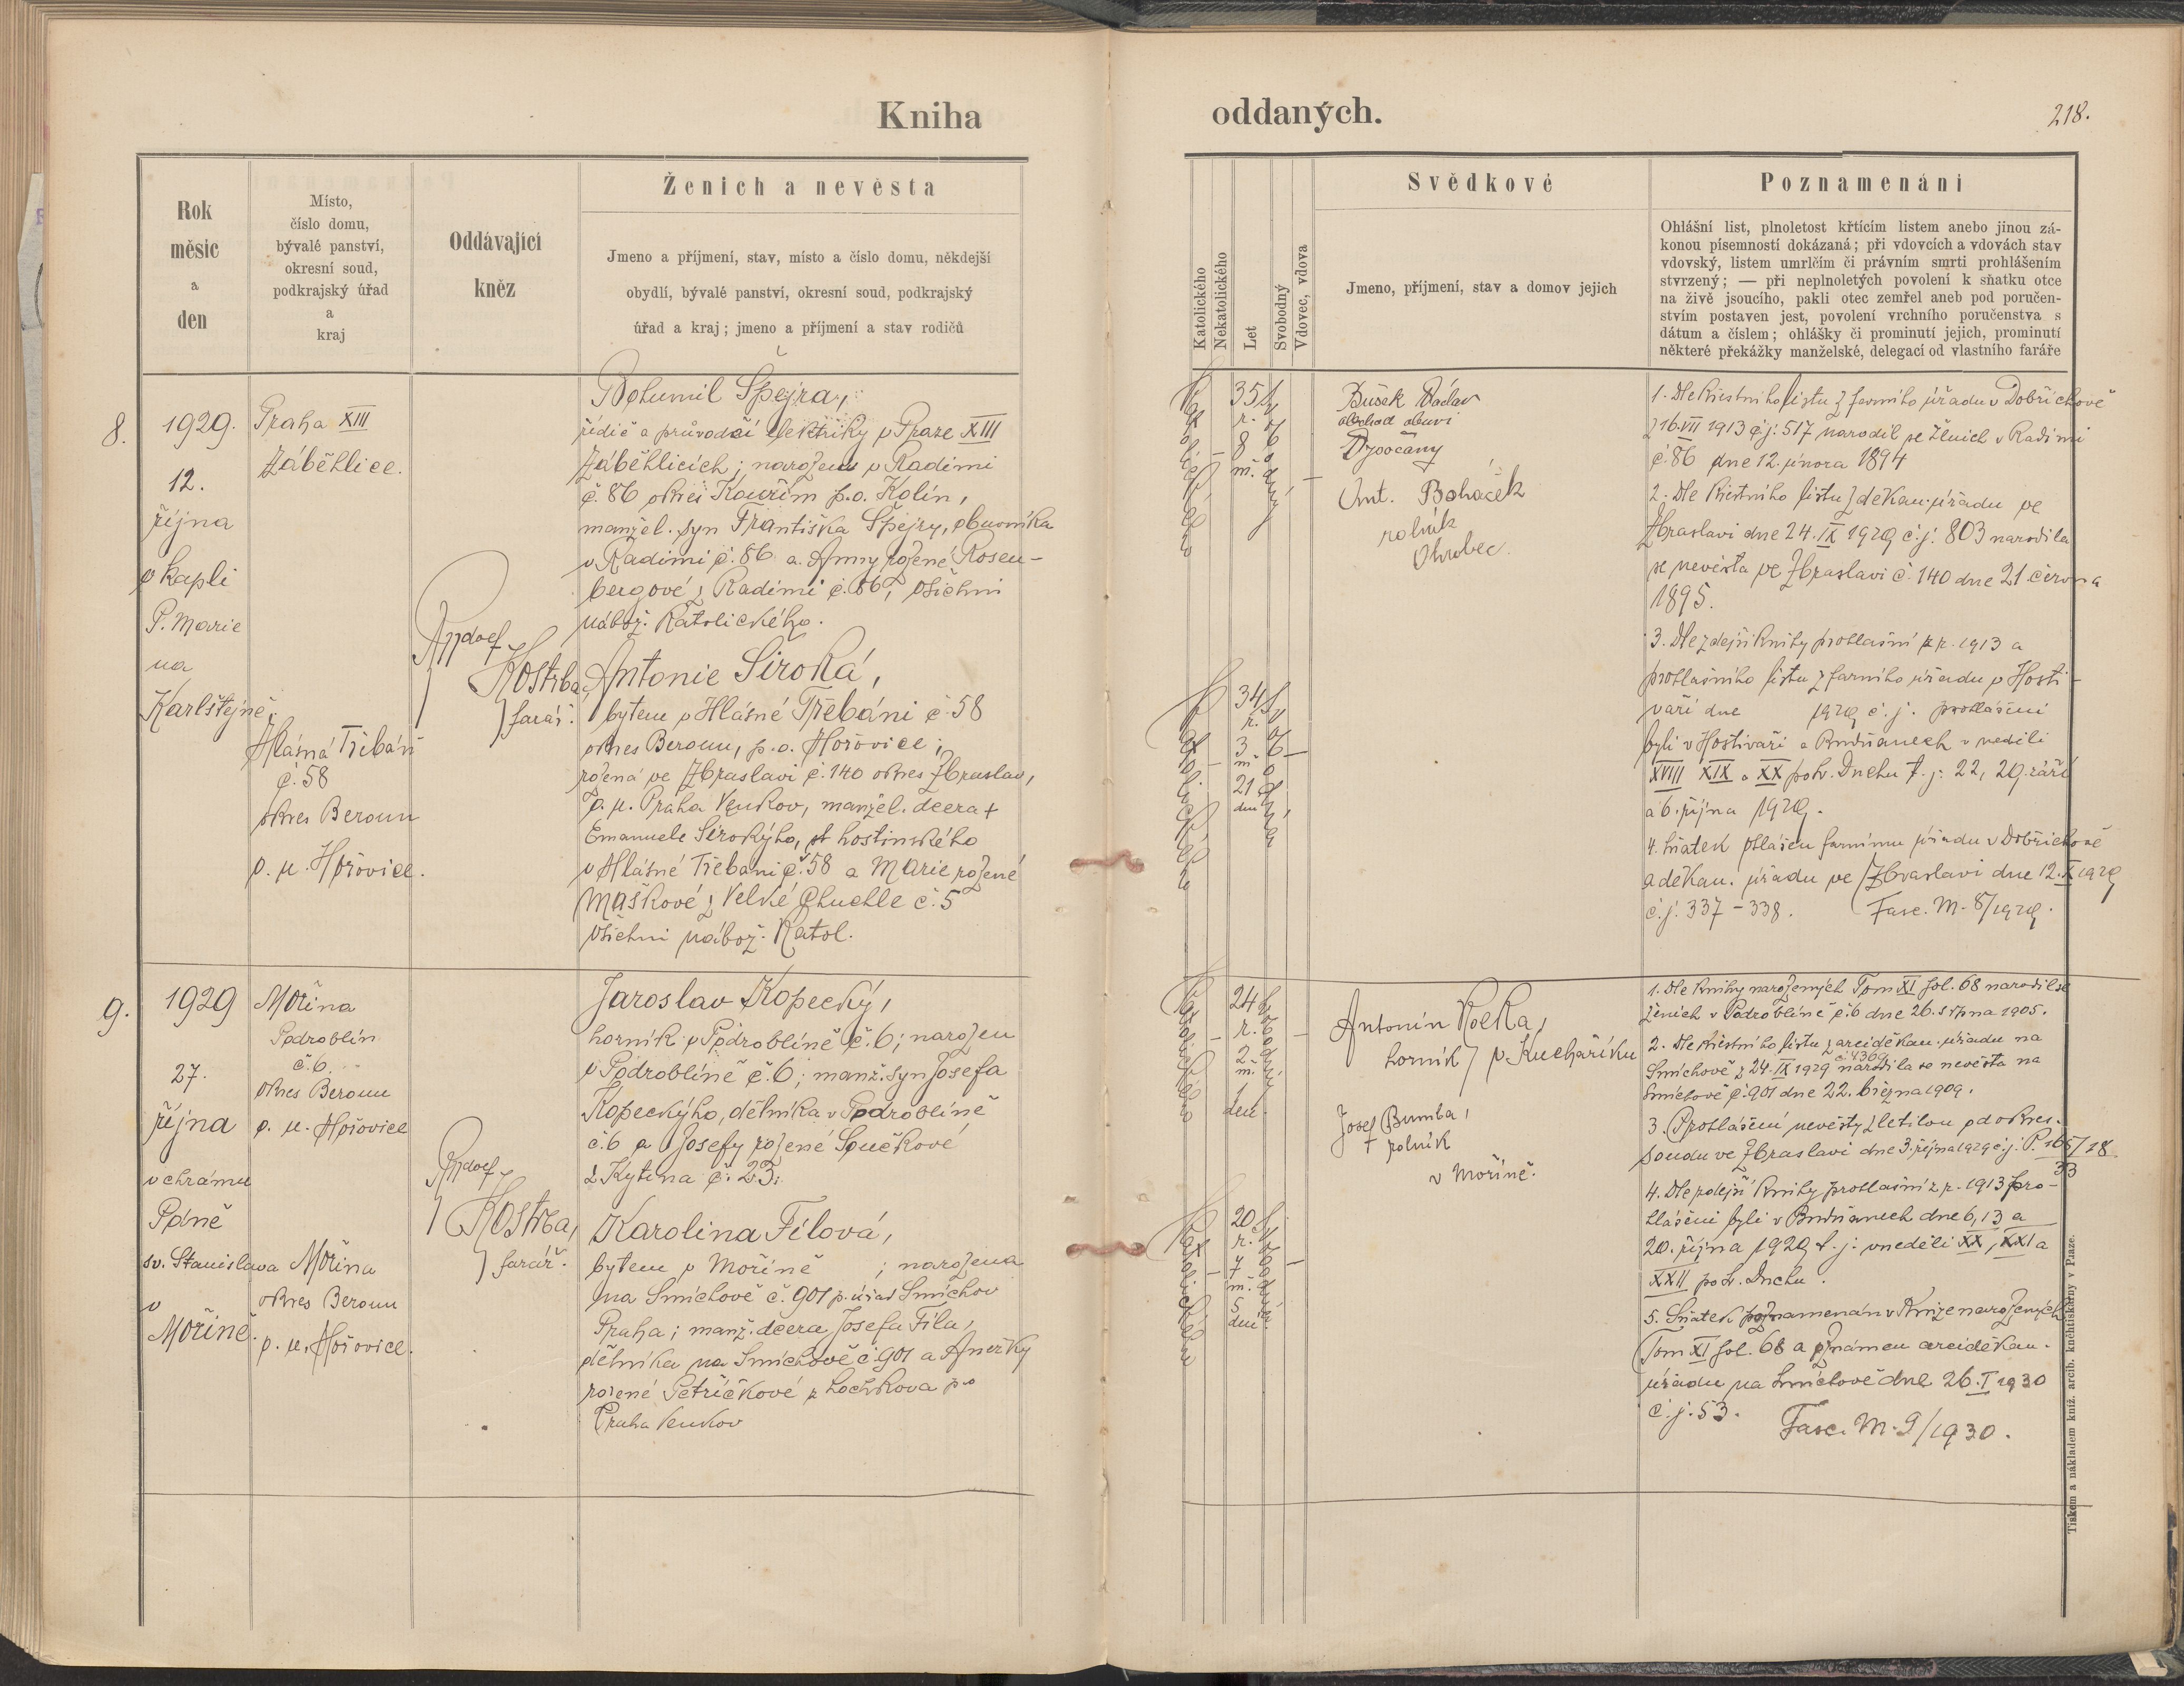 Kniha oddaných.
218.
Rok
měsíc
a
den
Místo,
číslo domu,
bývalé panství,
okresní soud,
podkrajský úřad
a
kraj
Oddávající
kněz
Ženich a nevěsta
Jmeno a příjmení, stav, místo a číslo domu, někdejší
obydlí, bývalé panství, okresní soud, podkrajský
úřad a kraj; jmeno a příjmení a stav rodičů
Katolického
Nekatolického
Let
Svobodný
Vdovec, vdova
Svědkové
Jmeno, příjmení, stav a domov jejich
Poznamenáni
Ohlášní list, plnoletost křtícím listem anebo jinou zá-
konou písemností dokázaná; při vdovcích a vdovách stav
vdovský, listem umrlčím či právním smrti prohlášením
stvrzený; — při neplnoletých povolení k sňatku otce
na živě jsoucího, pakli otec zemřel aneb pod poručen-
stvím postaven jest, povolení vrchního poručenstva s
dátum a číslem; ohlášky či prominutí jejich, prominutí
některé překážky manželské, delegací od vlastního faráře
8.
1929.
12.
října
v kapli
P. Marie
na
Karlštejně.
Praha XIII
Záběhlice.
Hlásná Třebáň
č. 58
okres Beroun
p. u. Hořovice.
Rudolf
Kostrba,
farář.
Bohumil Špejra,
řidič a průvodčí elektriky v Praze XIII
Záběhlicích; narozen v Radimi
č. 86 okres Kouřim p.o. Kolín,
manžel. syn Františka Špejry, obuvníka
v Radimi č. 86 a Anny rozené Rosen-
bergové z Radimi č. 86, všichni
nábož. Katolického.
Antonie Široká,
bytem v Hlásné Třebáni č. 58
okres Beroun, p.o. Hořovice;
rozená ve Zbraslavi č. 140 okres Zbraslav,
p. u. Praha Venkov, manžel. dcera †
Emanuele Širokýho, hostinského
v Hlásné Třebani č. 58 a Marie rozené
Maškové z Velké Chuchle č. 5
všichni nábož. Katol.
katolické
–
35
r.
8
m.
svobodný
–
katolické
–
34
r.
3
m
21
dnů
svobodná
–
Bušek Václav
obchod obuví
Vysočany
Ant. Boháček
rolník
Ohrobec.
1. Dle křestního listu z farního úřadu v Dobřichově
z 16. VII 1913 č.j. 517 narodil se ženich v Radimi
č. 86 dne 12. února 1894
2. Dle křestního listu z děkan. úřadu ve
Zbraslavi dne 24. IX 1929 č.j. 803 narodila
se nevěsta ve Zbraslavi č. 140 dne 21 června
1895.
3. Dle zdejší knihy prohlašní z r. 1913 a
prohlašního listu z farního úřadu v Hosti-
vaři dne 1929 č. j. prohlášeni
byli v Hostivaři a Budňanech v neděli
XVIII XIX a XX po sv. Duchu t. j. 22, 29. září
a 6. října 1929.
4. Sňatek ohlášen farnímu úřadu v Dobřichově
a děkan. úřadu ve Zbraslavi dne 12. X 1929
č.j. 337 – 338. Fasc. M. 8/1929.
9.
1929
27.
října
v chrámu
Páně
sv. Stanislava
v
Mořině.
Mořina
Podroblín
č. 6.
okres Beroun
p. u. Hořovice
Mořina
okres Beroun
p. u. Hořovice.
Rudolf
Kostrba,
farář.
Jaroslav Kopecký,
horník v Podroblíně č. 6; narozen
v Podroblíně č. 6; manž. syn Josefa
Kopeckýho, dělníka v Podroblíně
č. 6 a Josefy rozené Součkové
z Kytína č. 23.
Karolina Fílová,
bytem v Mořině ; narozena
na Smíchově č. 901 p. úřad Smíchov
Praha; manž. dcera Josefa Fíla,
dělníka na Smíchově č. 901 a Anežky
rozené Petříčkové z Lochkova p.o
Praha Venkov
katolické
–
24
r.
2
m.
1
den.
svobodný
–
katolické
–
20
r.
7
m.
5
dnů.
svobodná
–
Antonín Kočka,
horník v Kuchaříku
Josef Bumba,
rolník
v Mořině.
1. Dle knihy narozených Tom XI fol. 68 narodil se
ženich v Podroblíně č. 6 dne 26. srpna 1905.
2. Dle křestního listu z arciděkan. úřadu na
Smíchově z 24. IX 1929 č. 4369 narodila se nevěsta na
Smíchově č. 901 dne 22. března 1909.
3. Prohlášení nevěsty zletilou od okres.
soudu ve Zbraslavi dne 3. října 1929 č. j. P. 165/18
33
4. Dle zdejší knihy prohlašní z r. 1913 pro-
hlášeni byli v Budňanech dne 6, 13 a
20. října 1929 t. j. v neděli XX, XXI a
XXII po sv. Duchu.
5. Sňatek poznamenán v knize narozených
Tom XI fol. 68 a oznámen arciděkan.
úřadu na Smíchově dne 26. I 1930
č. j. 53.
Fasc. M. 9/1930.
Tiskem a nákladem kníž. arcib. knihtiskárny v Praze.